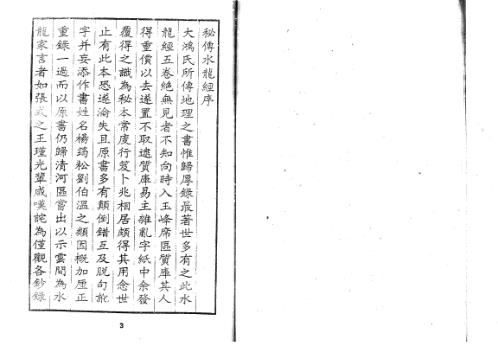 秘傳水龍經序
大鴻氏所傳地理之書惟歸厚錄最著世多有之此水
龍經五卷絕無見者不知向時入玉峰席區質庫其人
得重價以去遂置不取逮質庫易主雜亂字紙中余發
覆得之識為秘本常度行笈卜兆相居頗得其用念世
止有此本恐遂淪失且原書多有顛倒錯互及脫句訛
字并妄添作書姓名楊筠松劉伯溫之類因概加厘正
重錄一過而以原書仍歸清河區嘗出以示雲間為水
龍家言者如張式之王瑾光輩咸嘆詫為僅觀各鈔錄
3